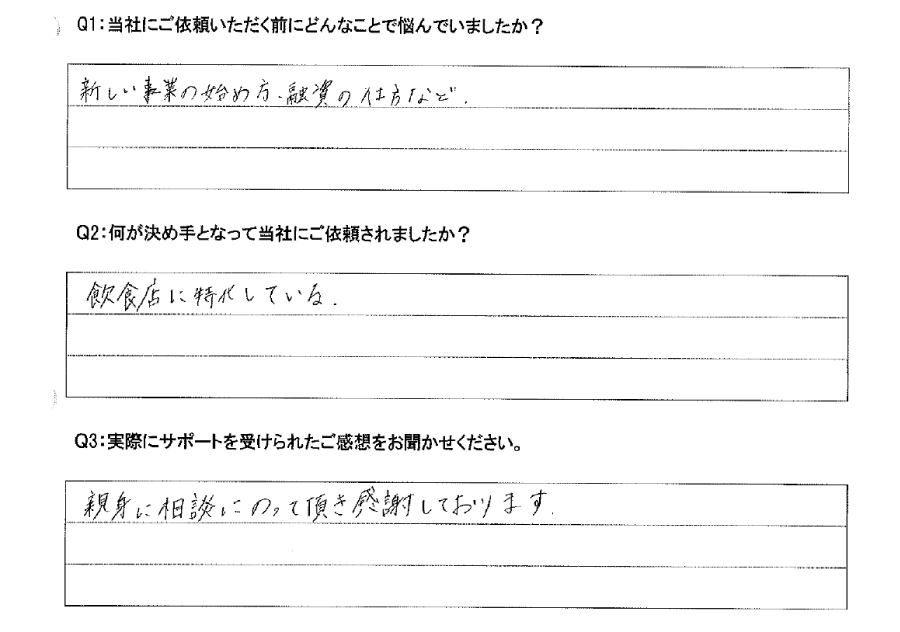 Q1:当社にご依頼いただく前にどんなことで悩んでいましたか？
新しい事業の始め方、融資の仕方など.
Q2:何が決め手となって当社にご依頼されましたか？
飲食店に特化している.
Q3:実際にサポートを受けられたご感想をお聞かせください。
親身に相談にのって頂き感謝しております.